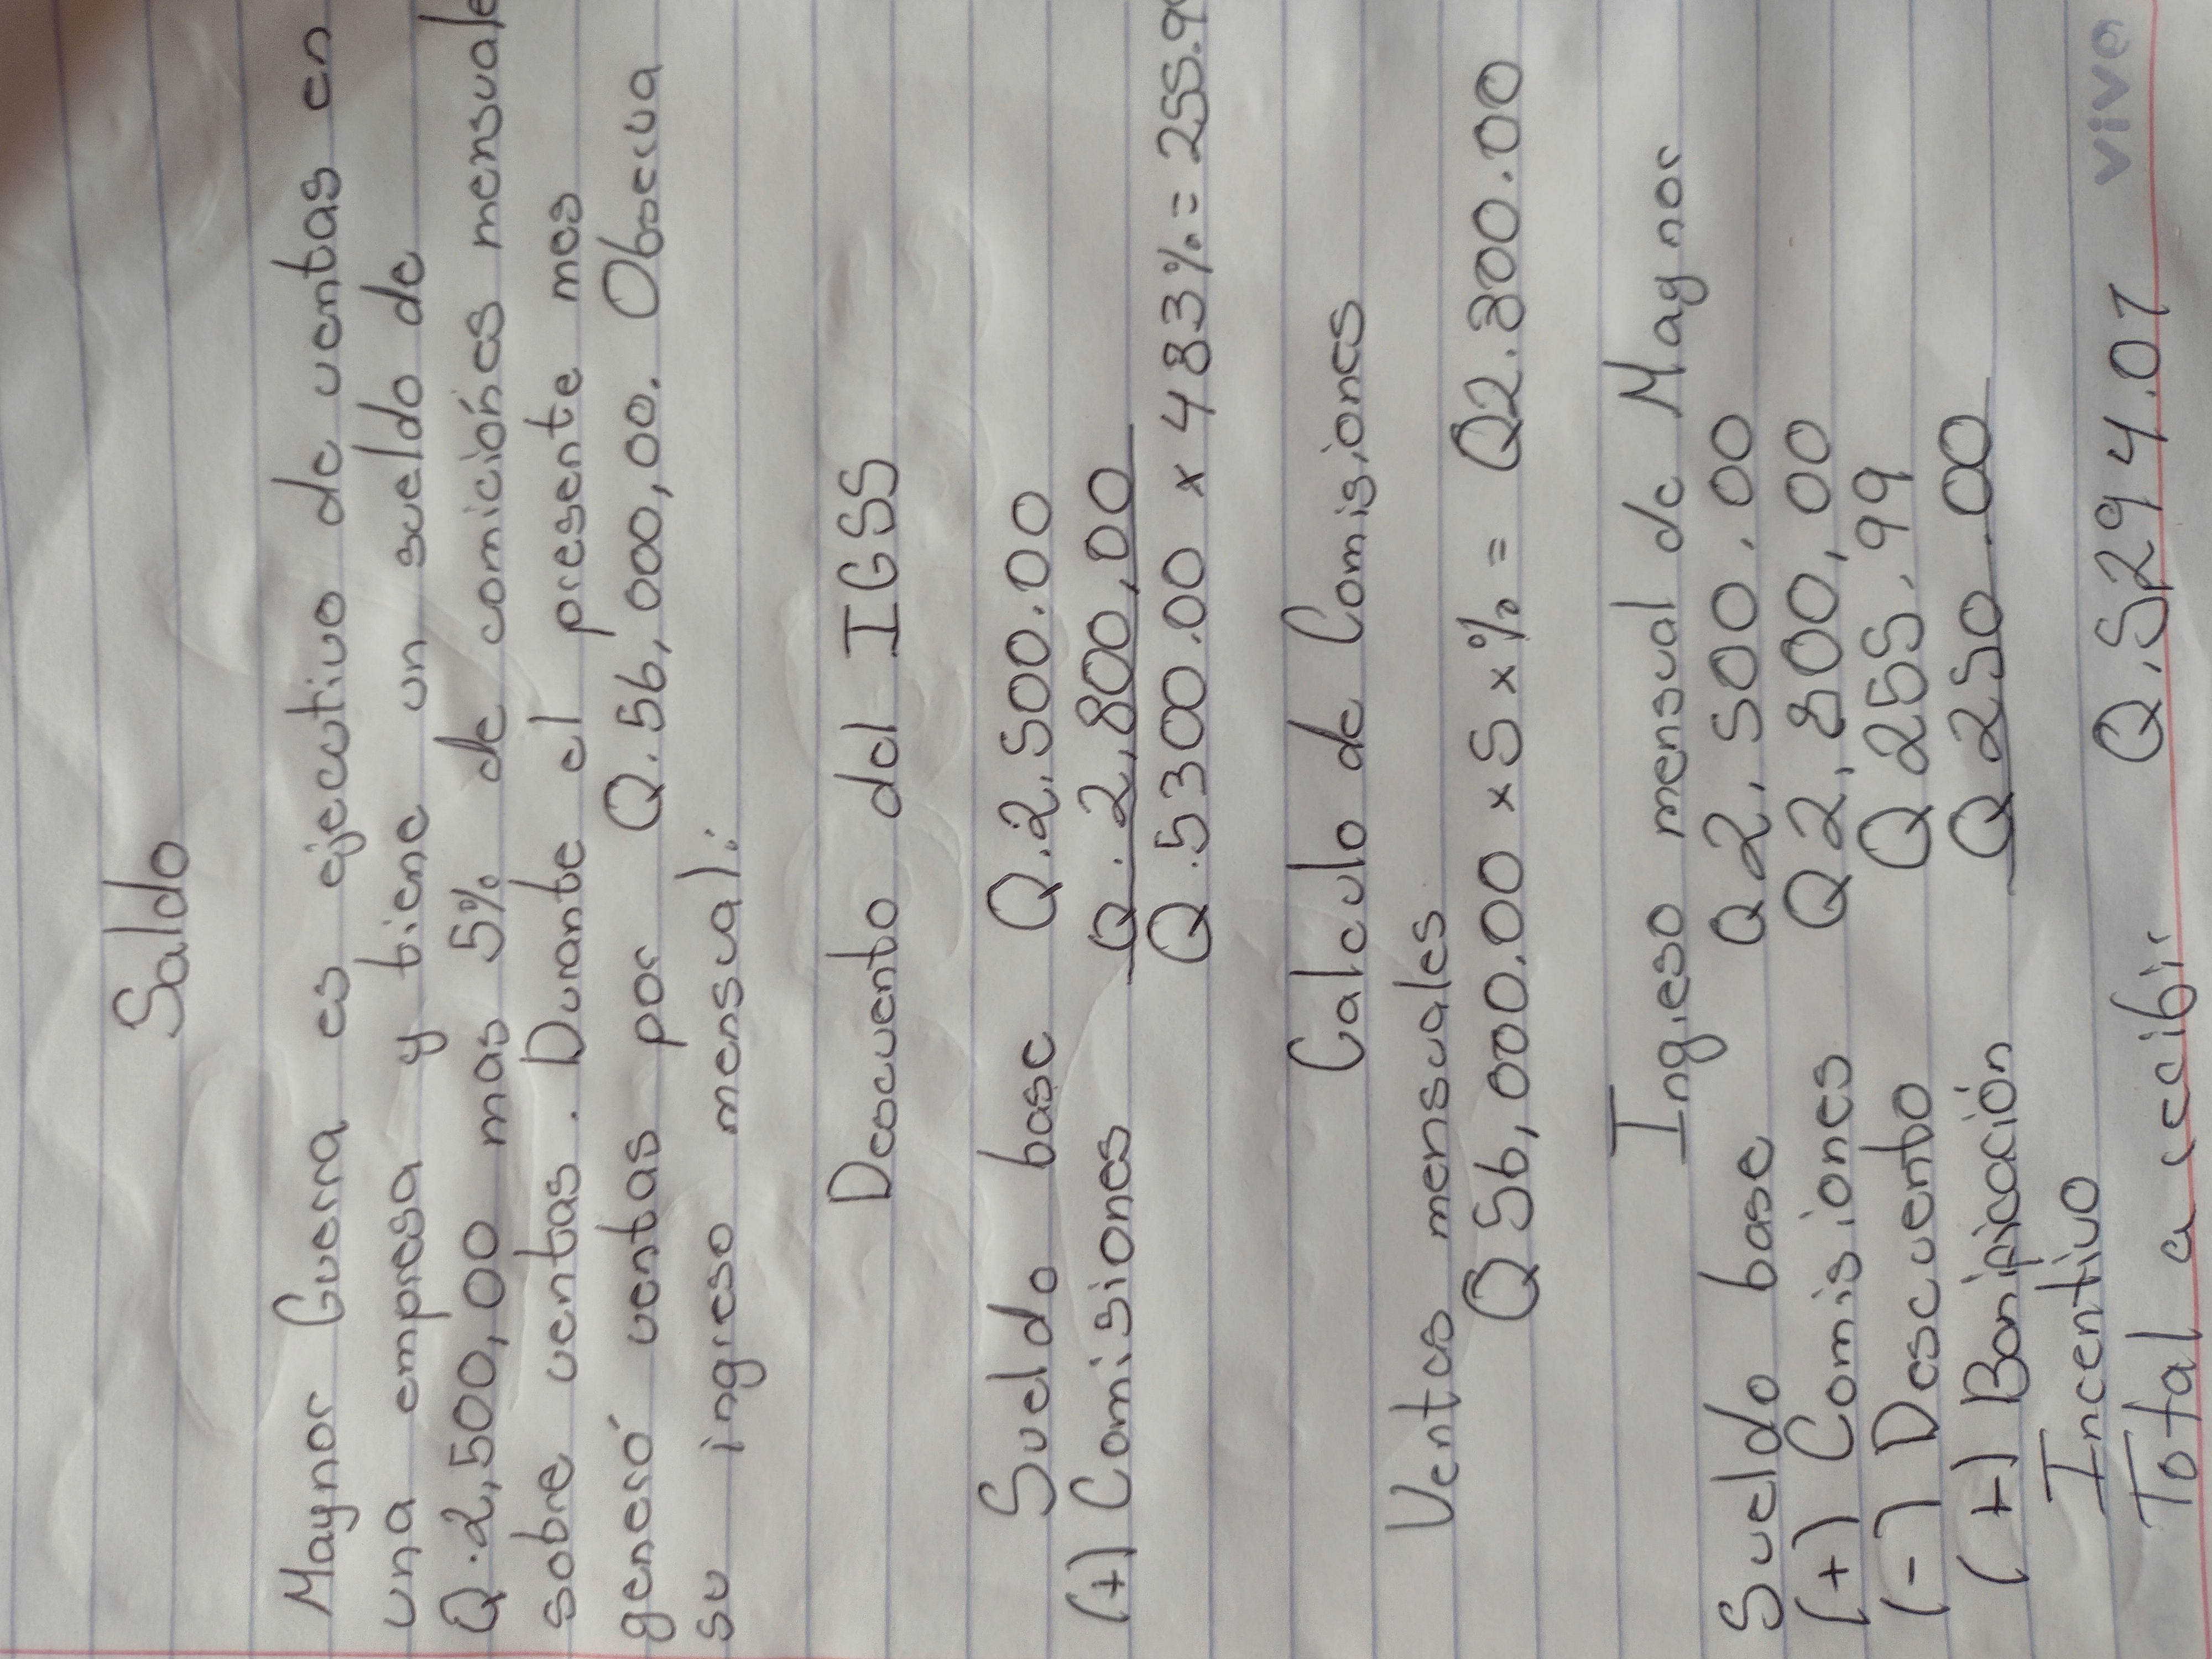 Saldo
Maynor Guerra es ejecutivo de ventas en
una empresa y tiene un sueldo de
Q.2,500,00 mas 5% de comiciónes mensuale
sobre ventas. Durante el presente mes
generó ventas por Q.56,000,00. Observa
su ingreso mensual:
Descuento del IGSS
Sueldo base Q.2,500.00
(+) Comisiones Q.2,800,00
Q.5300.00 x 483%= 255.9
Calculo de Comisiones
Ventas mensuales
Q56,000.00 x 5 x % = Q2.800.00
Ingreso mensual de Maynor
Sueldo base Q2,500,00
(+) Comisiones Q2,800,00
(-) Descuento Q255.99
(+) Bonificación Q250.00
Incentivo
Total a recibir Q.5294.01
vivo